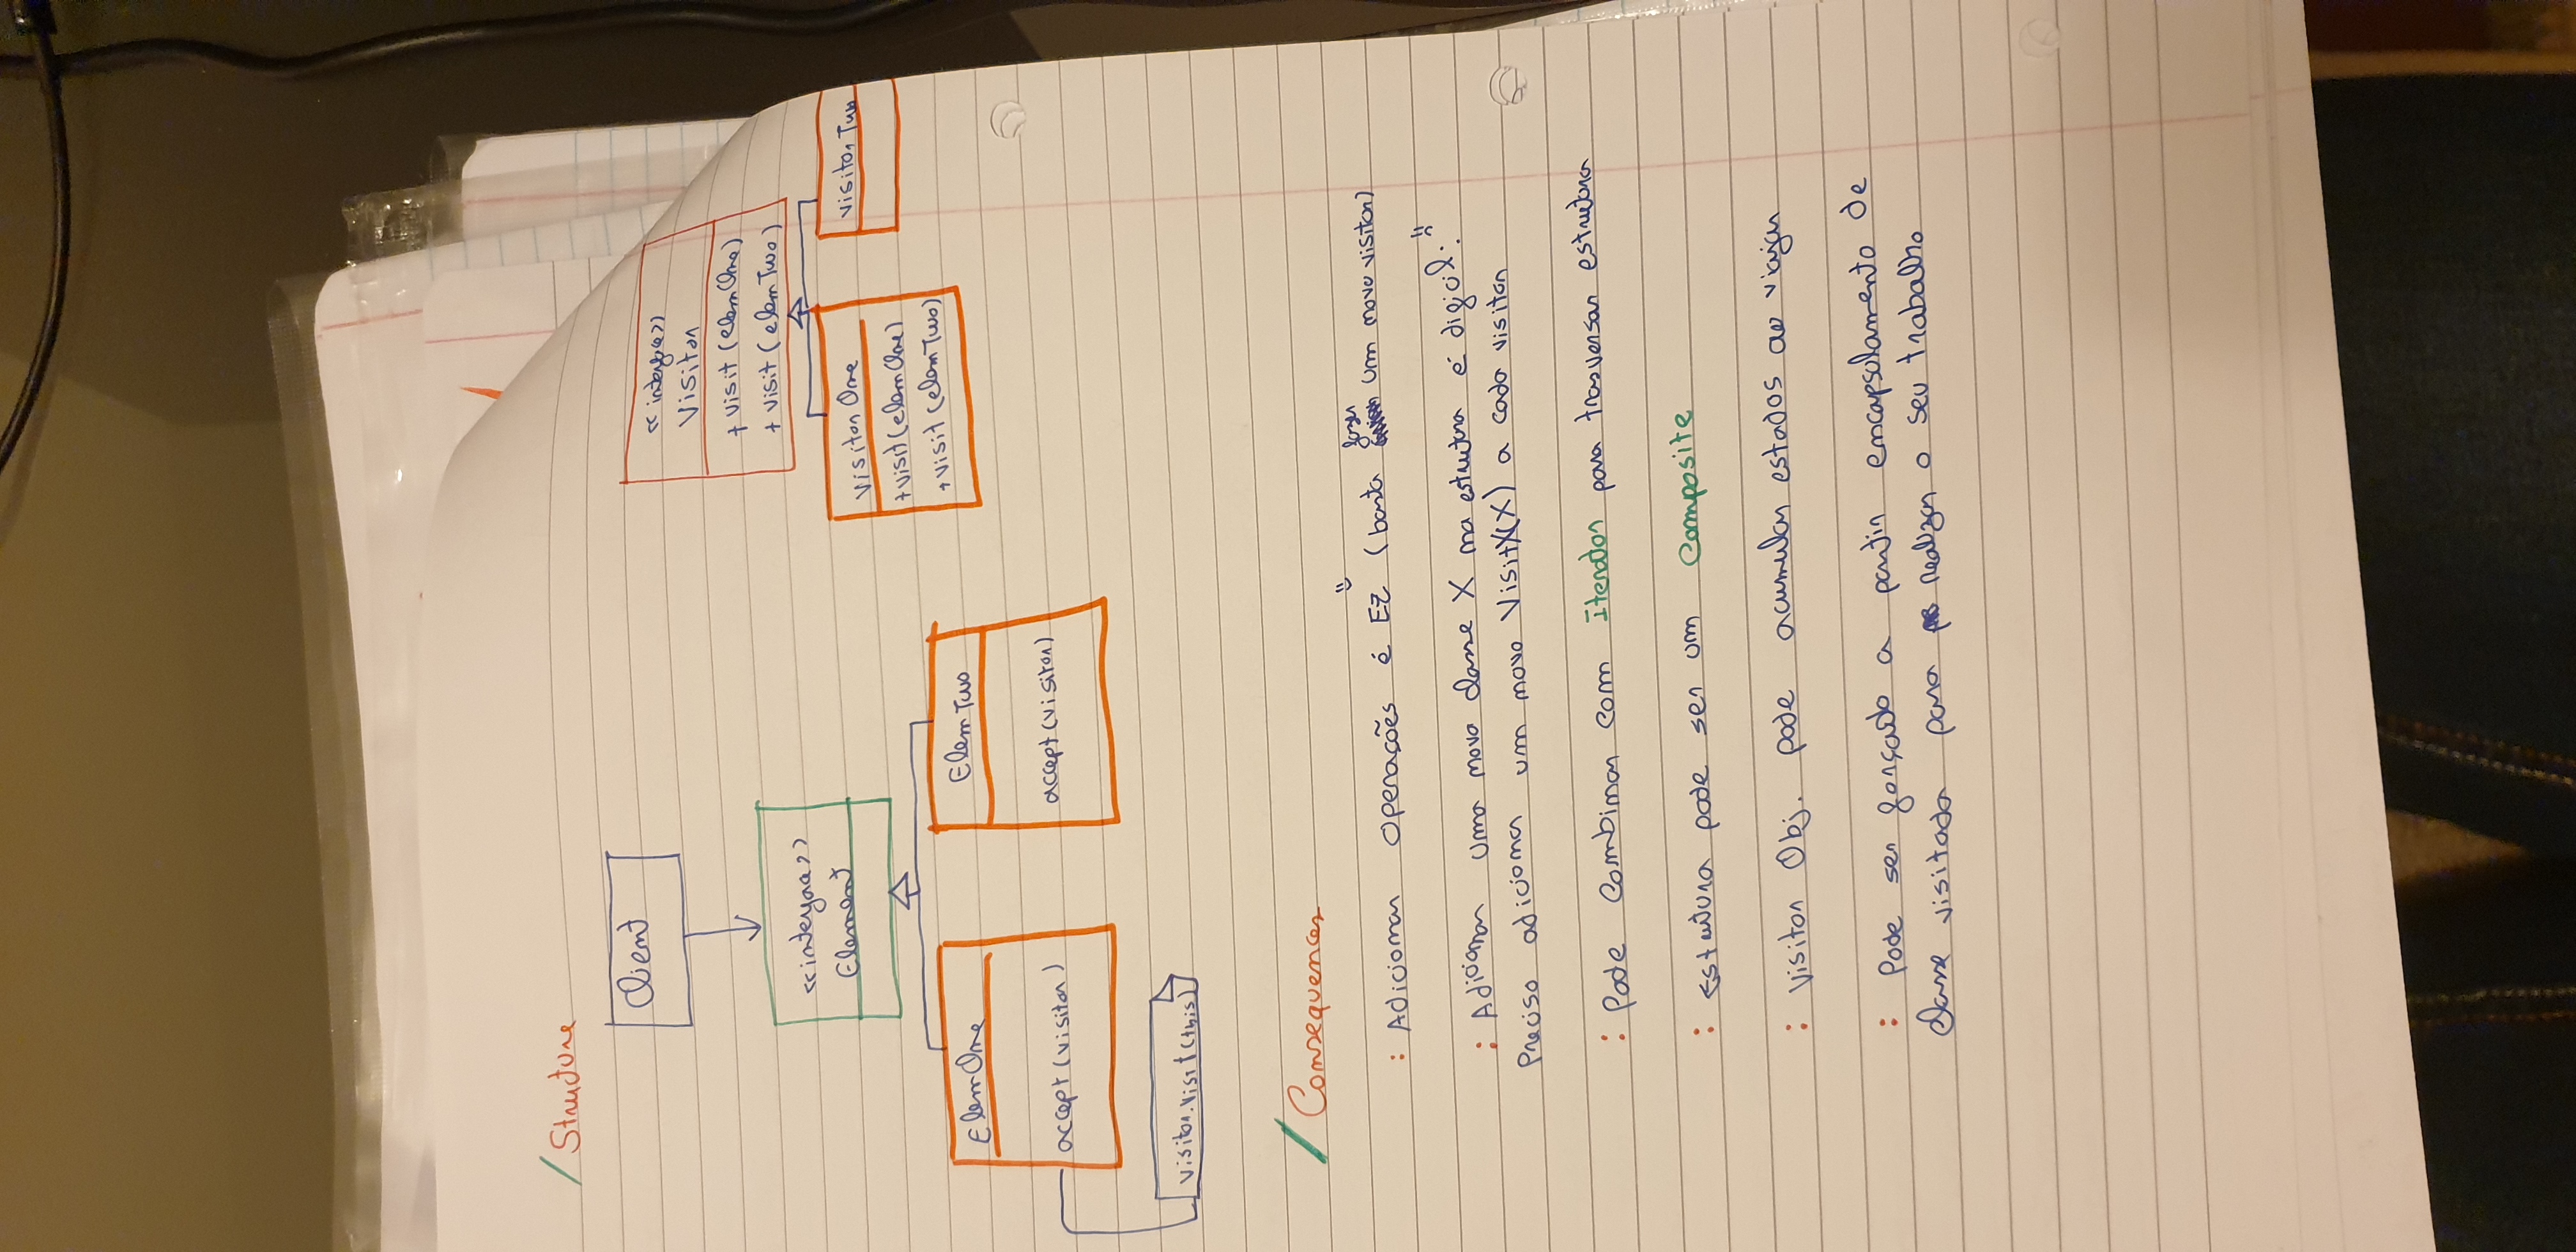 / Structure
Client
<<interface>>
Visitor
+ visit (elemOne)
+ visit (elemTwo)
<<interface>>
Element
visitor One
+visit(elemOne)
+visit(elemTwo)
visitor Two
ElemOne
accept(visitor)
ElemTwo
accept(visitor)
visitor.visit(this)
/ Consequences
: Adicionar operações é EZ (basta fazer um novo visitor)
: Adicionar uma nova classe X na estrutura é difícil:
Preciso adicionar um novo VisitX(X) a cada visitor
: Pode combinar com Iterador para trasversar estrutura
: Estrutura pode ser um Composite
: Visitor Obj. pode acumular estados ao viajar
: Pode ser forçado a partir encapsulamento de
classe visitada para realizar o seu trabalho